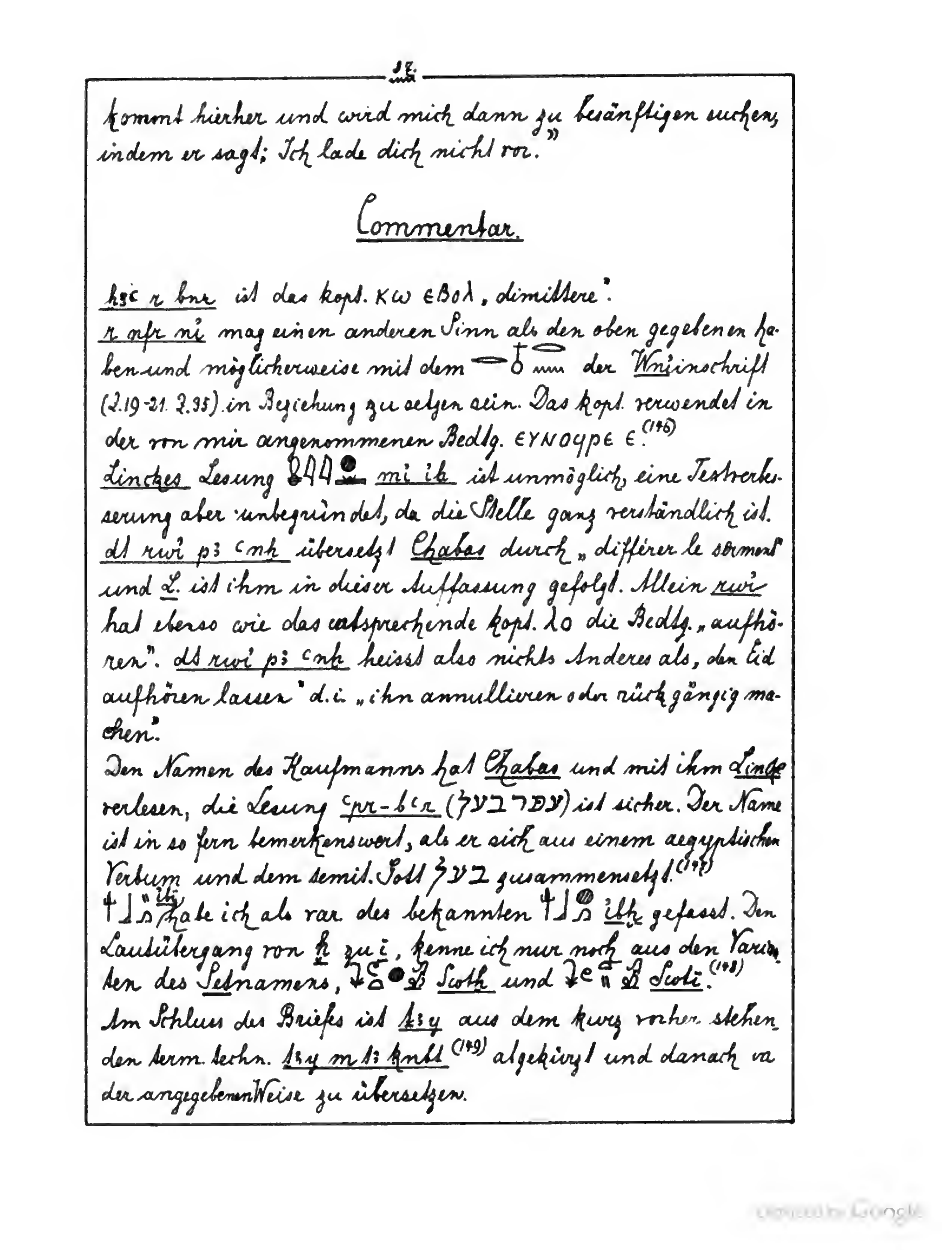 37.
kommt hierher und wird mich dann zu besänftigen suchen,
indem er sagt: Ich lade dich nicht vor.”
Commentar.
ḫꜣꜥ r bnr ist das kopt. ⲕⲱ ⲉⲃⲟⲗ „dimittere”.
r nfr ni̓ mag einen anderen Sinn als den oben gegebenen ha-
ben und möglicherweise mit dem der Wni̓inschrift
(Z.19-21. Z.35) in Beziehung zu setzen sein. Das kopt. verwendet in
der von mir angenommenen Bedtg. ⲉⲩⲛⲟϥⲣⲉ ⲉ.(146)
Linckes Lesung mi̓ ik ist unmöglich, eine Textverbes-
serung aber unbegründet, da die Stelle ganz verständlich ist.
dt rwi̓ pꜣ ꜥnḫ übersetzt Chabas durch „différer le serment”
und L. ist ihm in dieser Auffassung gefolgt. Allein rwi̓
hat ebenso wie das entsprechende kopt. ⲗⲟ die Bedtg. „aufhö-
ren”. dt rwi̓ pꜣ ꜥnḫ heisst also nichts Anderes als „den Eid
aufhören lassen” d.i. „ihn annullieren oder rückgängig ma-
chen”.
Den Namen des Kaufmanns hat Chabas und mit ihm Lincke
verlesen, die Lesung ꜥpr-bꜥr (עפר בעל) ist sicher. Der Name
ist in so fern bemerkenswert, als er sich aus einem aegyptischen
Verbum und dem semit. Gott בעל zusammensetzt.(147)
habe ich als var des bekannten gefasst. Den
Lautübergang von ḫ zu i, kenne ich nur noch aus den Varian-
ten des Setnamens, Swtḫ und Swti̓.(148)
Am Schluss des Briefes ist ṯꜣy aus dem kurz vorher stehen-
den term. techn. ṯꜣy m tꜣ ḳnbt (149) abgekürzt und danach
der angegebenen Weise zu übersetzen.
Digitized by Google